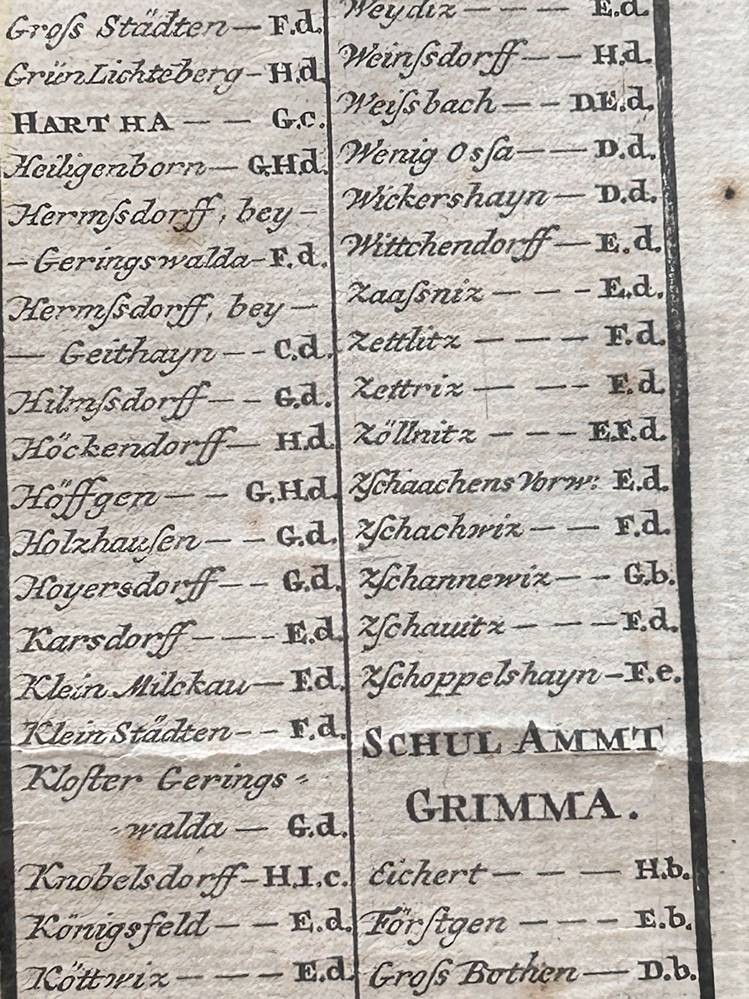 Groſs Städten — F.d.
GrünLichtēberg – H.d.
HARTHA — — G.c.
Heiligenborn — G.H.d.
Hermſsdorff, bey —
— Geringswalda – F.d.
Hermſsdorff, bey —
— Geithayn – – C.d.
Hilmſsdorff — — G.d.
Höckendorff — H.d.
Höffgen — — G.H.d.
Holzhauſen — — G.d.
Hoyersdorff — — G.d.
Karsdorff — — – E.d.
Klein Milckau — F.d.
Klein Städten – – F.d.
Kloſter Gerings⸗
⸗walda — G.d.
Knobelsdorff – H.I.c.
Königsfeld — — E.d.
Köttwiz — — — E.d.
Weydiz — — — E.d.
Weinſsdorff — — H.d.
Weiſsbach — — D.E.d.
Wenig Oſsa — — D.d.
Wickershayn — D.d.
Wittchendorff — E.d.
Zaaſsniz — — – E.d.
Zettlitz — — — F.d.
Zettriz — — — F.d.
Zöllnitz — — — E.F.d.
Zſchaachens Vorw: E.d.
Zſchachwiz — — F.d.
Zſchannewiz — — G.b.
Zſchauitz — — — F.d.
Zſchoppelshayn – F.e.
SCHUL AMMT
GRIMMA.
Eichert — — — H.b.
Förſtgen — — — E.b.
Groſs Bothen — D.b.